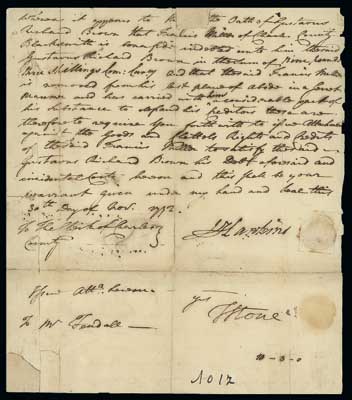 Whereas it appears to me by the Oath of Gustavus
Richard Brown that Francis of Charles County
Blacksmith is bona fide indebted unto him the said
Gustavus Richard Brown in the sum of Nine pounds
three Shillings Com: Curcy and that the said Francis
is removed from his last place of abode in a Secret
manner and has carried with him a considerable part of
his Substance to defraud his Creditors these are
therefore to require you forthwith to Attach
against the Goods and Chattels Rights and Credits
of the said Francis to satisfy the said
Gustavus Richard Brown his Debt aforesaid and
incidental Costs hereon and this shall be your
warrant given under my hand and Seal this
30th Day of Nov. 1772.
To The of Charles
County
Hawkins
Atta.
yrs
To Mr Tendall
Stone
10-3-0
No 12